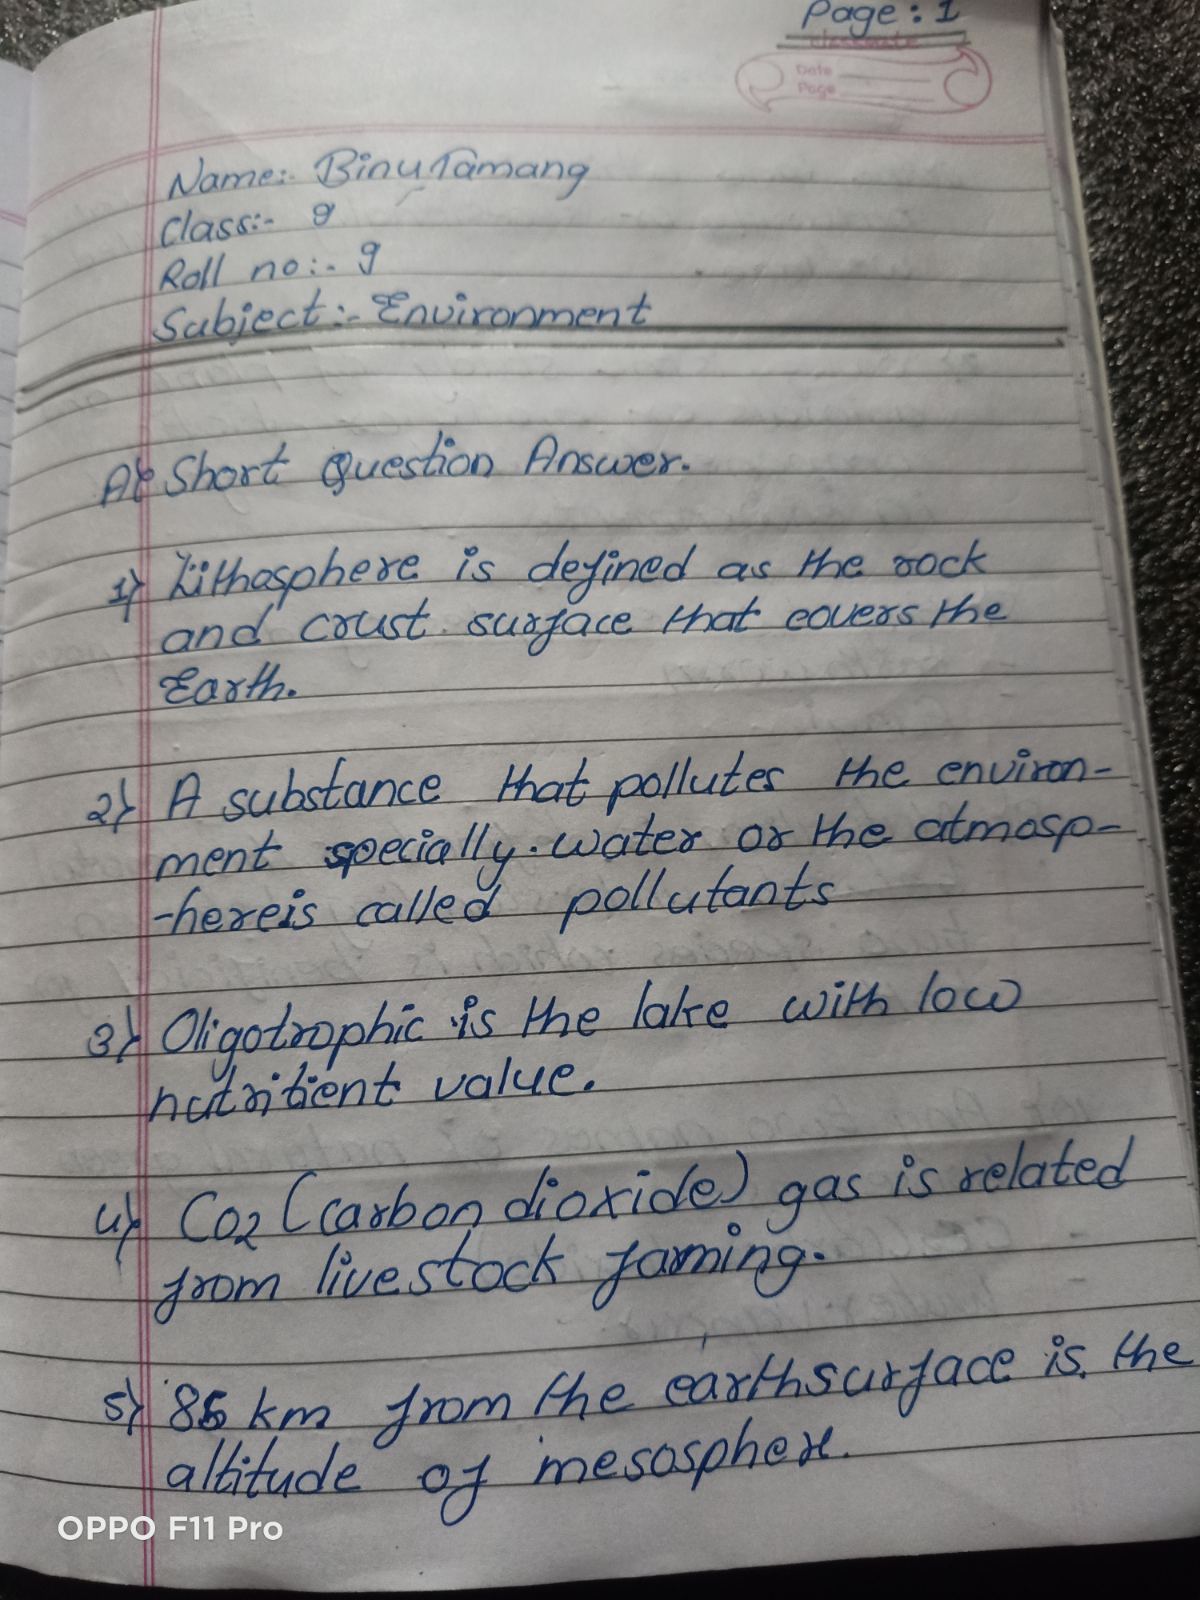 Page: 1
classmate
Date
Page
Name:- Binu Tamang
Class:- 9
Roll no:- 9
Subject:- Environment
A) Short Question Answer.
1) Lithosphere is defined as the rock
and crust surface that covers the
Earth.
2) A substance that pollutes the environ-
ment specially water or the atmosp-
-here is called pollutants
3) Oligotrophic is the lake with low
nutritient value.
4) CO2 (carbon dioxide) gas is related
from livestock faming.
5) 85 km from the earth surface is the
altitude of mesosphere.
OPPO F11 Pro